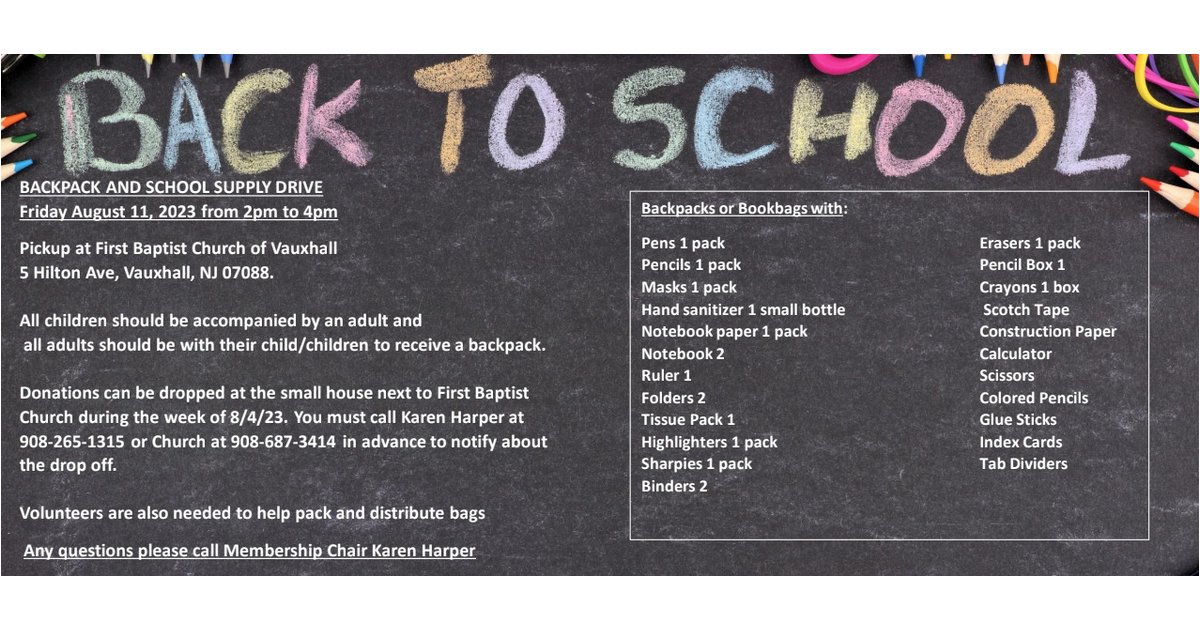 BACK TO SCHOOL
BACKPACK AND SCHOOL SUPPLY DRIVE
Friday August 11, 2023 from 2pm to 4pm
Pickup at First Baptist Church of Vauxhall
5 Hilton Ave, Vauxhall, NJ 07088.
All children should be accompanied by an adult and
all adults should be with their child/children to receive a backpack.
Donations can be dropped at the small house next to First Baptist
Church during the week of 8/4/23. You must call Karen Harper at
908-265-1315 or Church at 908-687-3414 in advance to notify about
the drop off.
Volunteers are also needed to help pack and distribute bags
Any questions please call Membership Chair Karen Harper
Backpacks or Bookbags with:
Pens 1 pack
Pencils 1 pack
Masks 1 pack
Hand sanitizer 1 small bottle
Notebook paper 1 pack
Notebook 2
Ruler 1
Folders 2
Tissue Pack 1
Highlighters 1 pack
Sharpies 1 pack
Binders 2
Erasers 1 pack
Pencil Box 1
Crayons 1 box
Scotch Tape
Construction Paper
Calculator
Scissors
Colored Pencils
Glue Sticks
Index Cards
Tab Dividers